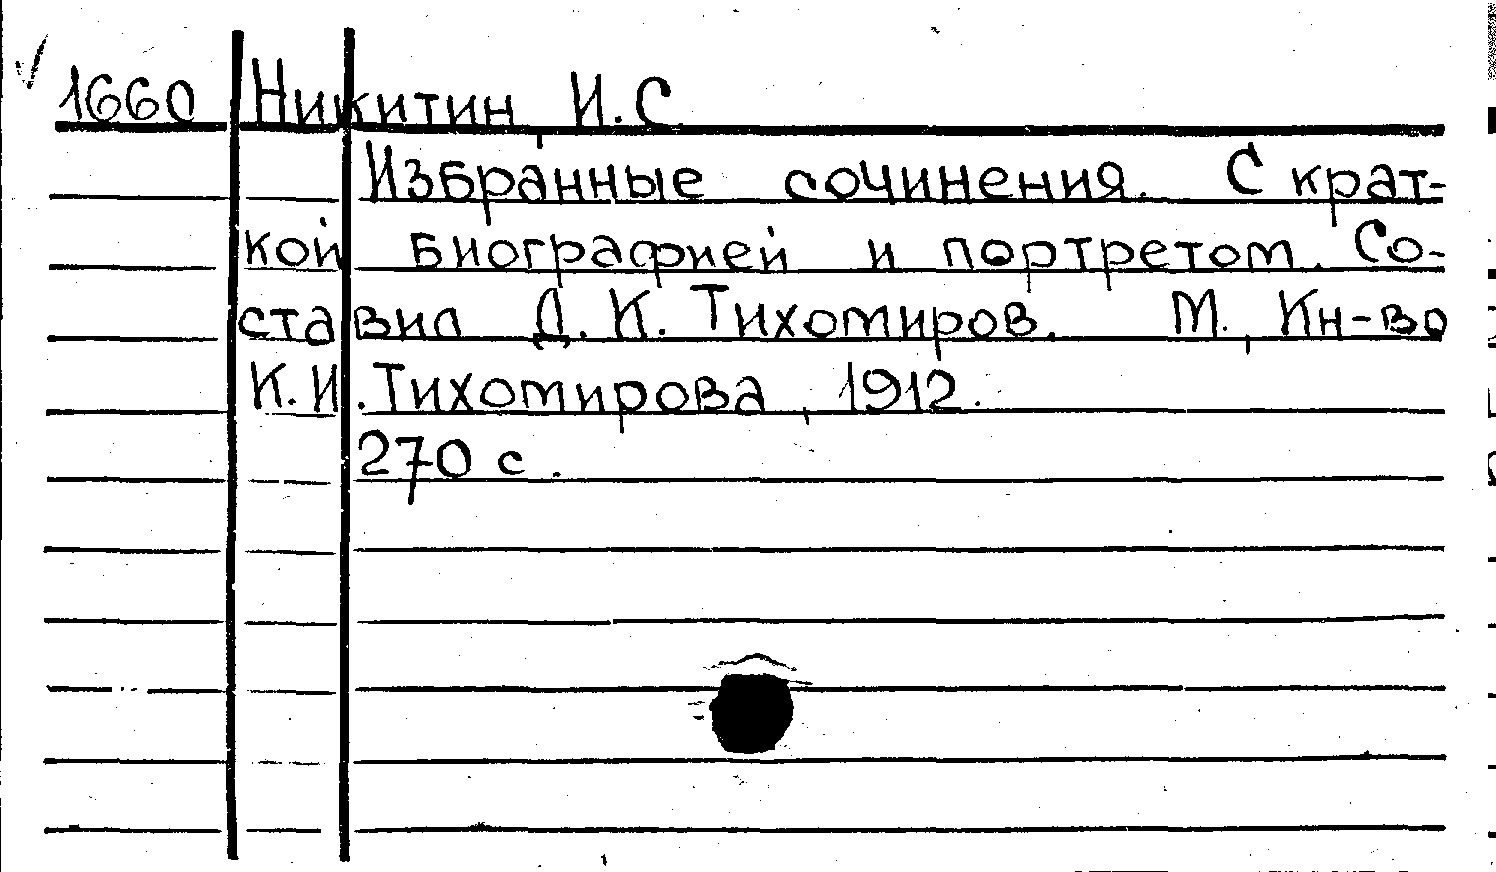 1660 Никитин, И.С.
Избранные сочинения. С крат-
кой биографией и портретом. Со-
ставил Д.К. Тихомиров. М., Кн-во
К.И. Тихомирова, 1912.
270 с.